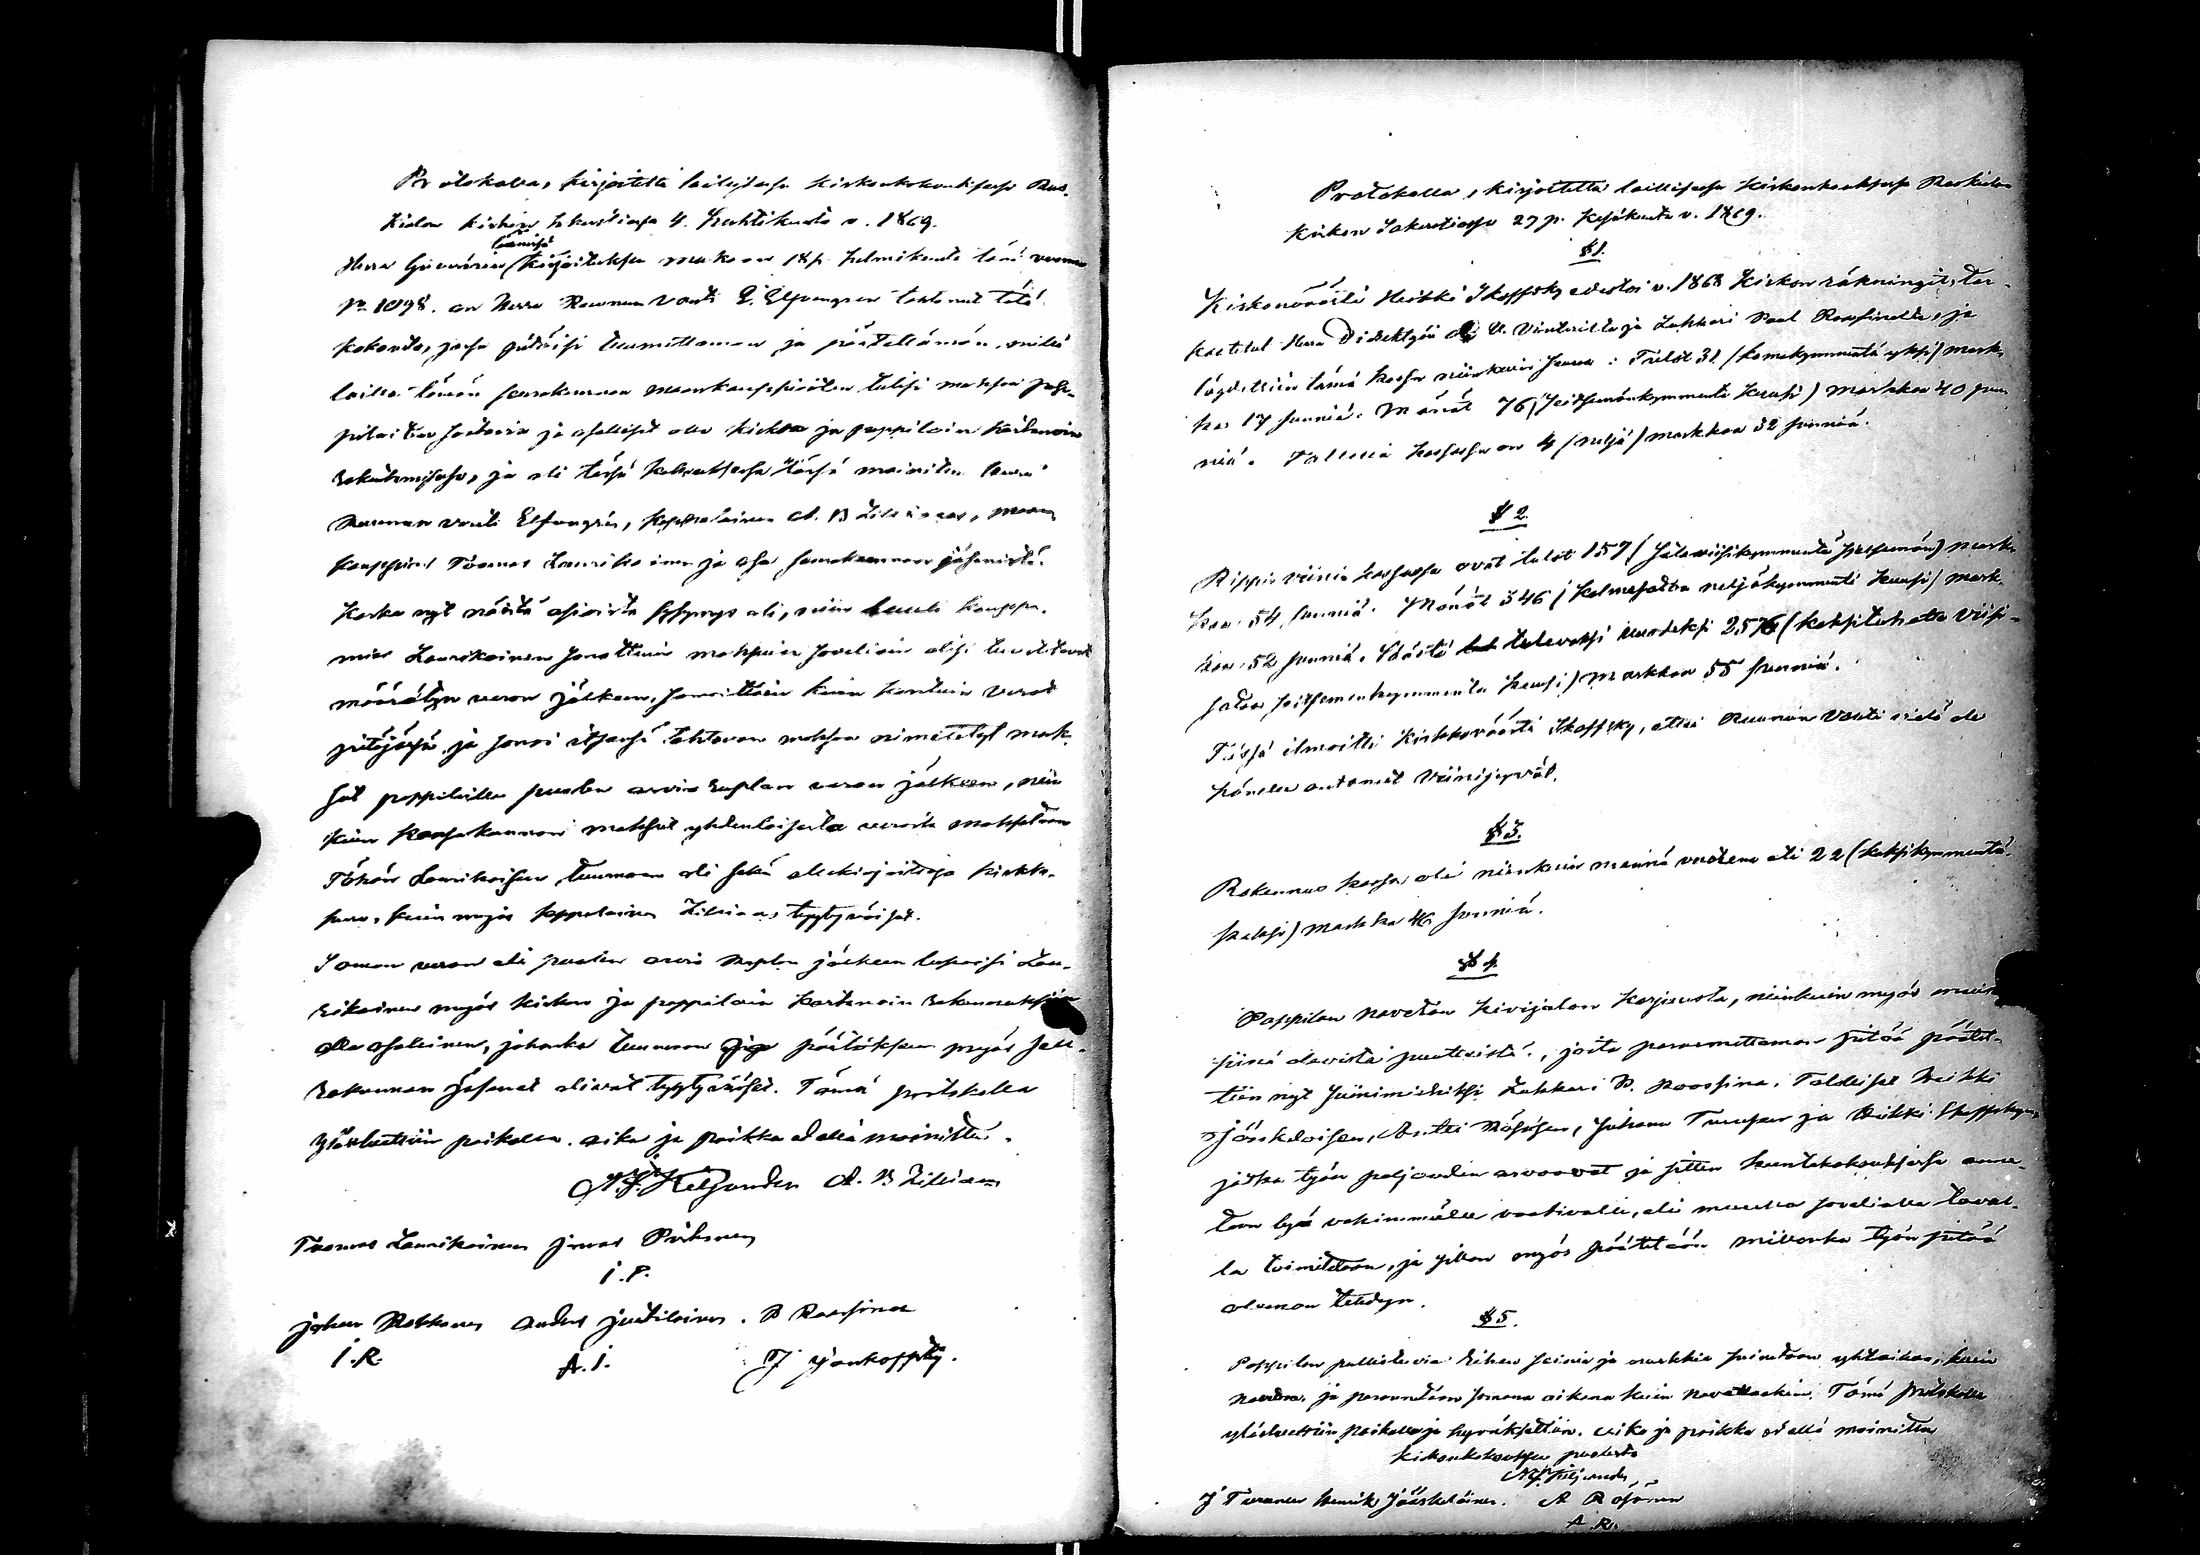 Protokolla, kirjoitettu laillisessa kirkonkokouksessa Rus-
kialan kirkon sakastiassa 4. Huhtikuuta v. 1869.
Herra Guvernörin läänissä kirjoituksen mukaan 18 p. helmikuuta tänä vuonna
No 1098. on Herra Ruunun Vouti E. Elfvengren tahtonut tätä
kokousta, jossa pitäisi tuumittaman ja päätettämän, millä
lailla tämän seurakunnan maankauppioiten tulisi maksaa
pitäisi ja osalliset olla kirkko ja pappilain kartanoin
rakentamisessa, ja oli tässä kokouksessa läsnä mainittu Herra
Ruunun vouti Elfvengren, kappalainen A. B. Lilius, maan
kauppias Tuomas Laurikainen ja osa seurakunnan jäseniä.
Koska nyt näistä asioista kysymys oli, niin luuli kauppa-
mies Laurikainen jonottain maksun soveliain olisi
määrätyn veron jälkeen, samoittain kuin kartuin verot
pitäjässä ja sanoi itsensä tahtovan maksaa nimitetyt mak-
sot pappilaille puolen arvio ruplan veron jälkeen, niin
kuin kansakunnan maksut yhdenlaisesta verosta maksetaan
Tähän Laurikaisen tuumaan oli sekä allekirjoittaja kirkko-
herra, kuin myös kappalainen Lilius, tyytyväiset.
Saman veron eli puolen arvio ruplan jälkeen lupaisi Lau-
rikainen myös kirkon ja pappilain kartanoin rakennuksiin
olla osallinen, johonka tuumaan ja päätöksen myös seu-
rakunnan jäsenet olivat tyytyväiset. Tämä protokolla
ylösluettiin paikalla. aika ja paikka edellä mainittu.
A. B. Lilius
Tuomas Laurikainen Jonas Pirhonen
J. P.
Johan Rokkanen Anders Juutilainen. P Raassina
J. R. A. J.
Protokolla, kirjoitettu laillisessa kirkonkokouksessa Ruskialan
Kirkon Sakastiassa 27 p. Kesäkuuta v. 1869.
§ 1.
Kirkonväärti Heikki Skoffsky edestoi v. 1868 Kirkon räkningit, tar-
kastetut Herra Direktyöri Winterilta ja Lukkari Paul Raassinalta, ja
löydettiin tämä kassa niinkuin seuraa: Tulot 31 (kolmekymmentä yksi) mark-
kaa 17 penniä. Menot 76 (seitsemänkymmentä kuusi) markkaa 40 pen-
niä. Tallella kassassa on 4 (neljä) markkaa 32 penniä.
§ 2.
Rippiviinin kassassa ovat tulot 157 (sataviisikymmentä seitsemän) mark-
kaa 54 penniä. Menot 346 (kolmesataa neljäkymmentä kuusi) mark-
kaa 52 penniä. Säästö tulevaksi vuodeksi 2576 (kaksituhatta viisi-
sataa seitsemänkymmentä kuusi) Markkaa 55 penniä.
Tässä ilmoitti Kirkkoväärti Skoffsky, ettei Ruunun Vouti vielä ole
hänelle antanut Viinijyvät.
§ 3.
Rakennus kassa oli niinkuin mennä vuotena eli 22 (kaksikymmentä
kaksi) markkaa 46 penniä.
§ 4.
Pappilan navetan kivijalan korjausta, niinkuin myös muista
siinä olevista puutteista, joita parannettaman pitää päätet-
tiin nyt syynimiehiksi Lukkari P. Raassina, Talolliset Heikki
Jääskeläisen, Antti Räsäsen, Johana Turusen ja Heikki Skoffskyn,
jotka työn paljouden arvaavat ja sitten kuntakokouksessa anne-
taan työ vähimmälle vaativalle, eli muulla soveliaalla taval-
la toimitetaan, ja silloin myös päätetään milloinka työn pitää
oleman tehdyn.
§ 5.
Pappilan riihen seiniä ja nurkkia syinätään yhtaikaa, kuin
navetan, ja parannetaan samana aikana kuin navettaakin. Tämä protokolla
ylösluettiin paikalla ja hyväksyttiin. aika ja paikka edellä mainittu
kirkonkokouksen puolesta
J Turunen Henrik Jääskeläinen. A Räsänen
A. R.